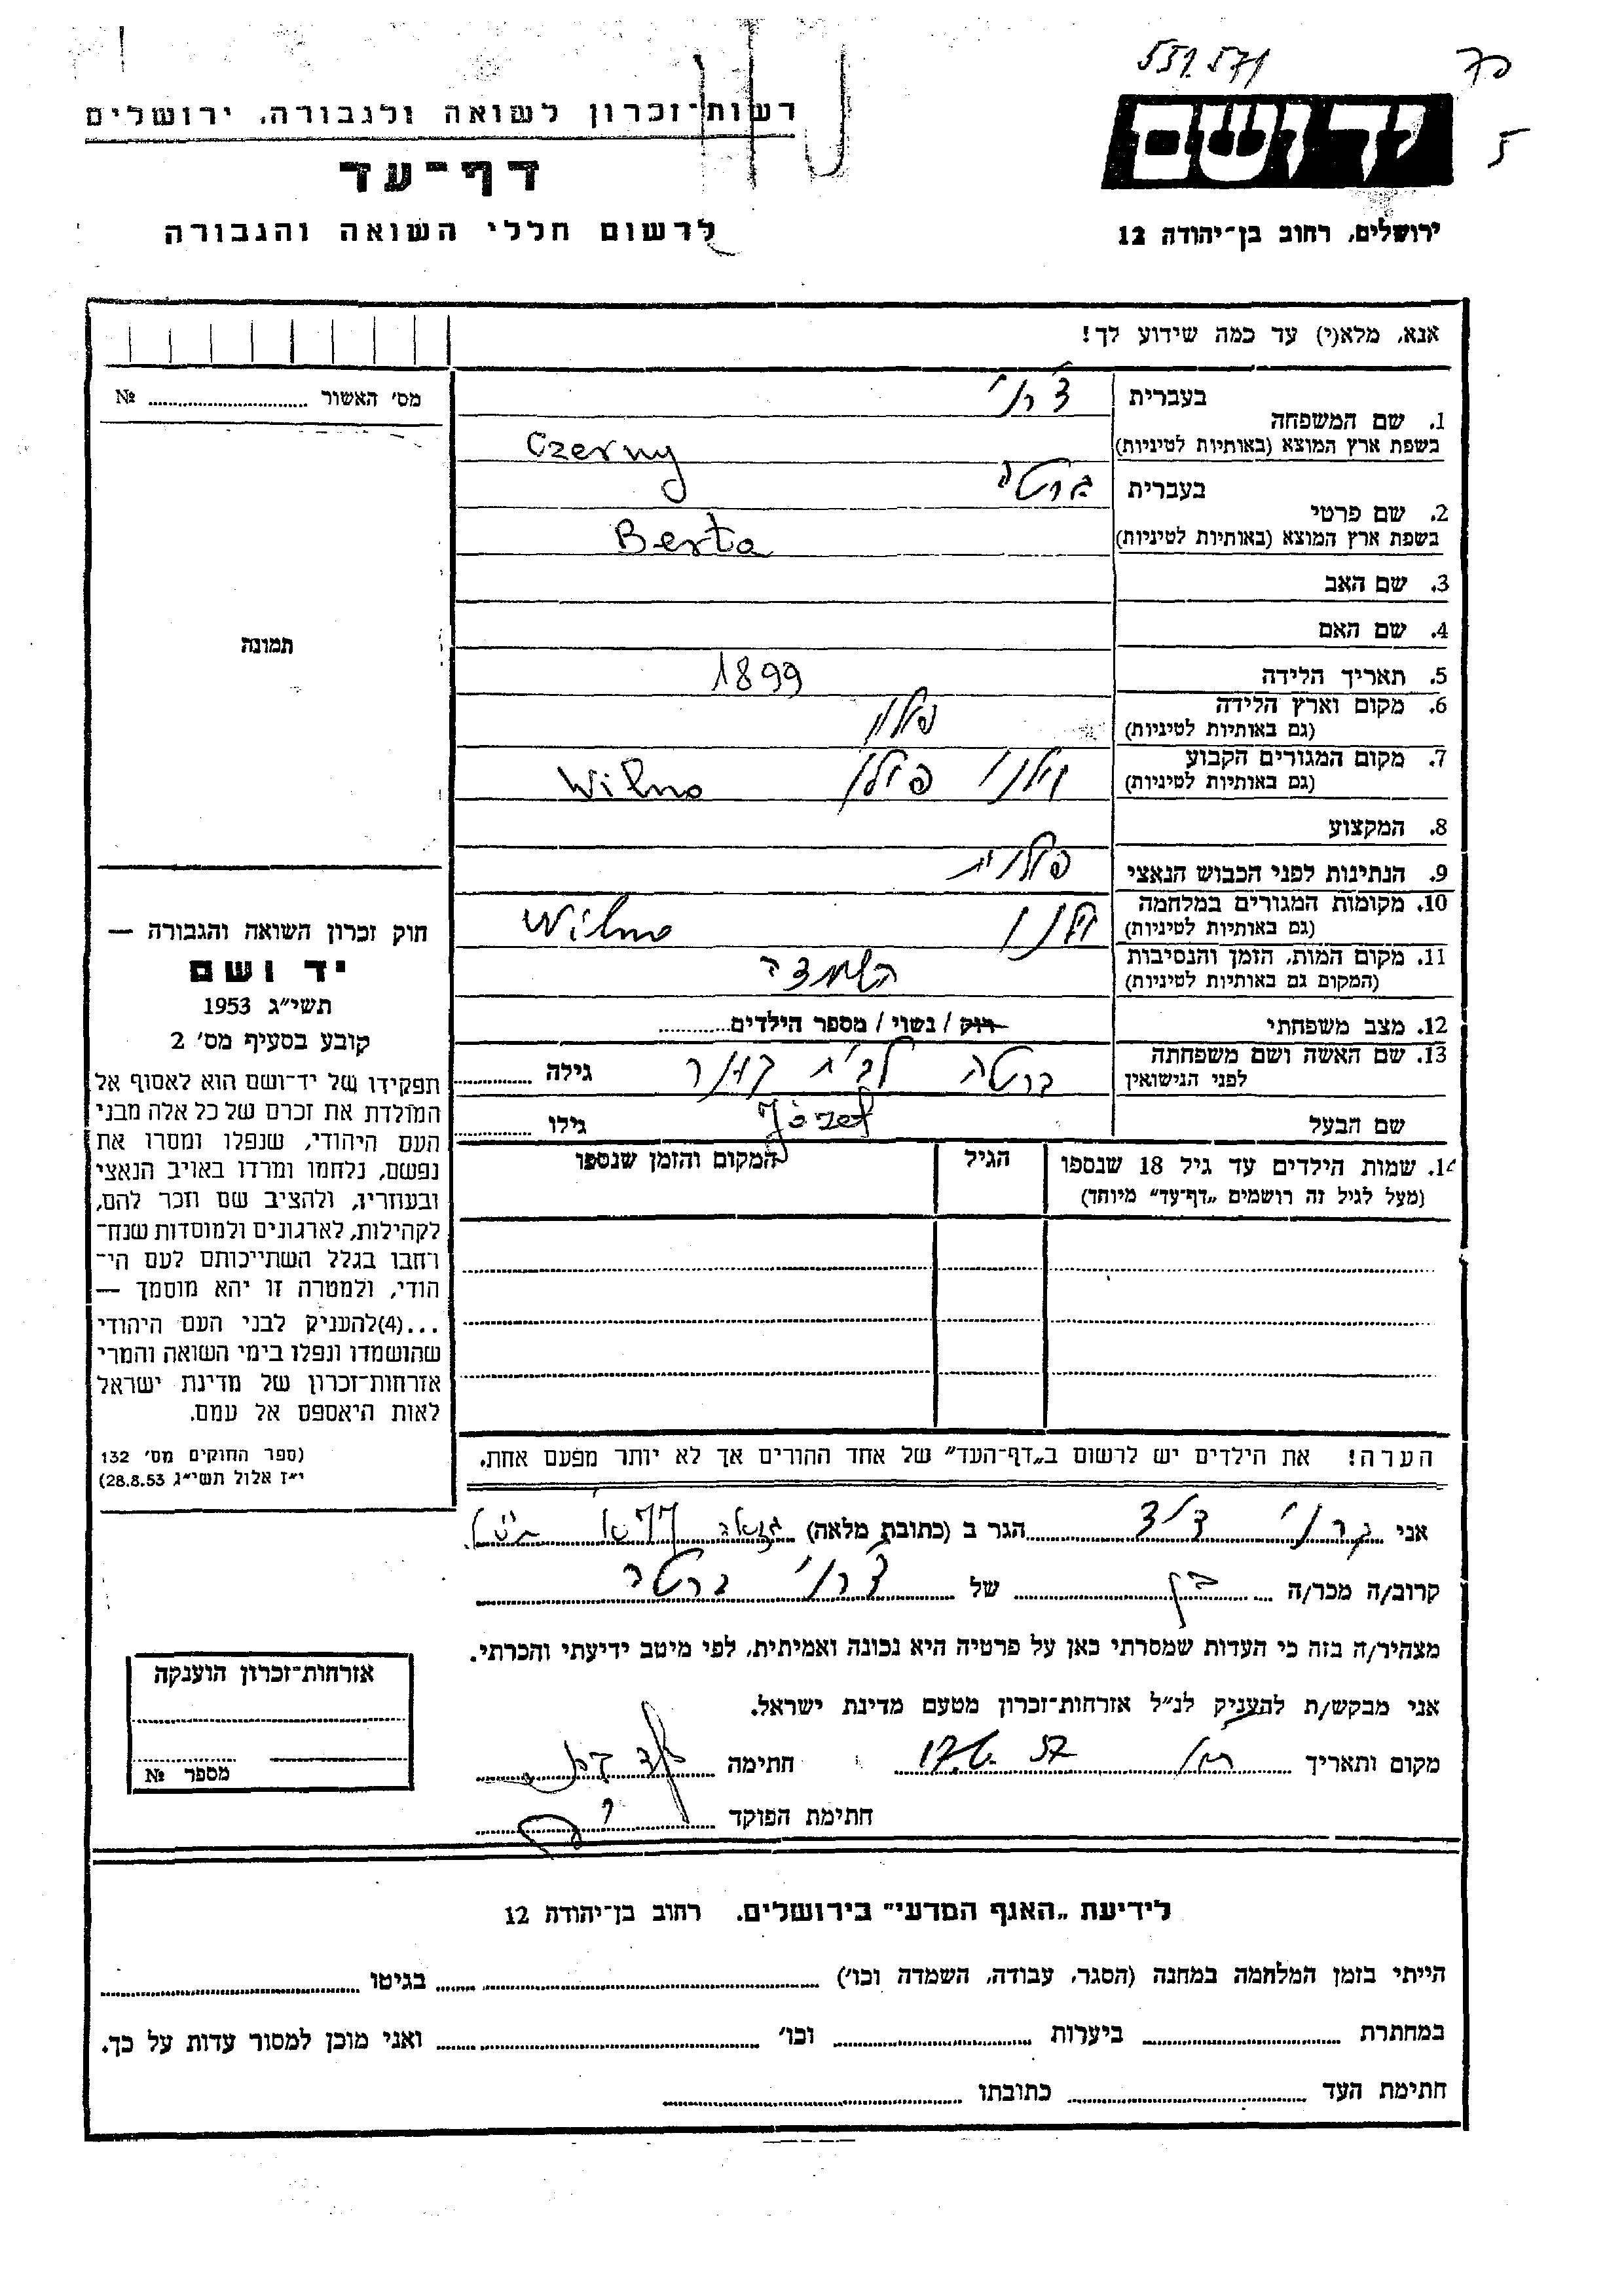 551571
70
5
יד ושם
ירושלים, רחוב בן־יהודה 12
רשות־זכרון לשואה ולגבורה, ירושלים
דף־עד
לרשום חללי השואה והגבורה
אנא, מלא(י) עד כמה שידוע לך!
1. שם המשפחה
בעברית
צ'רני
בשפת ארץ המוצא (באותיות לטיניות)
Czerny
2. שם פרטי
בעברית
ברטה
בשפת ארץ המוצא (באותיות לטיניות)
Berta
3. שם האב
4. שם האם
5. תאריך הלידה 1899
6. מקום וארץ הלידה פולין
(גם באותיות לטיניות)
7. מקום המגורים הקבוע
(גם באותיות לטיניות)
וילנו פולין Wilno
8. המקצוע
9. הנתינות לפני הכבוש הנאצי פולנית
10. מקומות המגורים במלחמה
(גם באותיות לטיניות)
וילנו Wilno
11. מקום המות, הזמן והנסיבות
(המקום גם באותיות לטיניות)
השמדה
12. מצב משפחתי רוק / נשוי / מספר הילדים
13. שם האשה ושם משפחתה
לפני הנישואין
ברטה לבית גילה
שם הבעל Józef גילו
14. שמות הילדים עד גיל 18 שנספו
(מעל לגיל זה רושמים „דף־עד" מיוחד)
הגיל
המקום והזמן שנספו
הערה! את הילדים יש לרשום ב„דף־העד" של אחד ההורים אך לא יותר מפעם אחת.
מס' האשור №
תמונה
חוק זכרון השואה והגבורה —
יד ושם
תשי"ג 1953
קובע בסעיף מס' 2
תפקידו של יד־ושם הוא לאסוף אל
המולדת את זכרם של כל אלה מבני
העם היהודי, שנפלו ומסרו את
נפשם, נלחמו ומרדו באויב הנאצי
ובעוזריו, ולהציב שם וזכר להם,
לקהילות, לארגונים ולמוסדות שנח־
רחבו בגלל השתייכותם לעם הי־
הודי, ולמטרה זו יהא מוסמך —
...(4)להעניק לבני העם היהודי
שהושמדו ונפלו בימי השואה והמרי
אזרחות־זכרון של מדינת ישראל
לאות היאספם אל עמם.
(ספר החוקים מס' 132
י"ז אלול תשי"ג 28.8.53)
אני הגר ב (כתובת מלאה)
קרוב/ה מכר/ה בן של צ'רני ברטה
מצהיר/ה בזה כי העדות שמסרתי כאן על פרטיה היא נכונה ואמיתית, לפי מיטב ידיעתי והכרתי.
אני מבקש/ת להעניק לנ"ל אזרחות־זכרון מטעם מדינת ישראל.
מקום ותאריך 57 חתימה
חתימת הפוקד
אזרחות־זכרון הוענקה
מספר №
לידיעת „האגף המדעי" בירושלים, רחוב בן־יהודה 12
הייתי בזמן המלחמה במחנה (הסגר, עבודה, השמדה וכו') בגיטו
במחתרת ביערות וכו' ואני מוכן למסור עדות על כך.
חתימת העד כתובתו